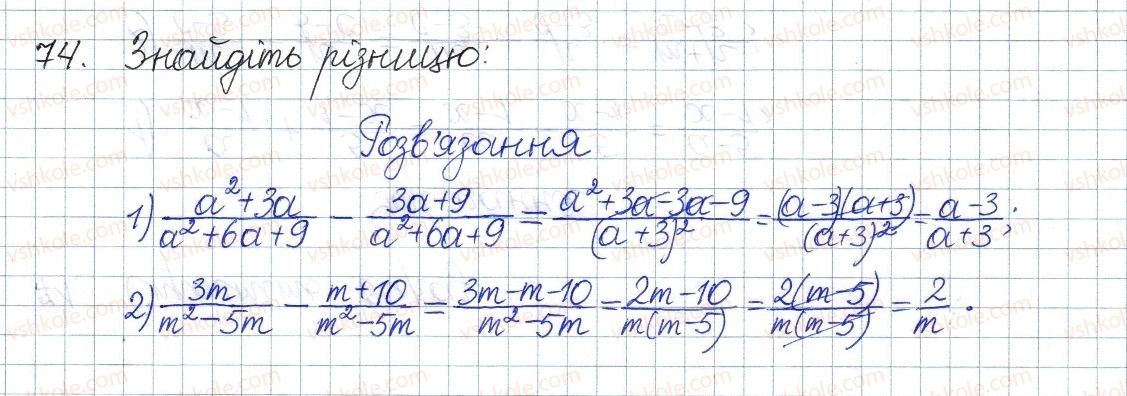 74. Знайдіть різницю:
Розв'язання
1) (a²+3a)/(a²+6a+9) − (3a+9)/(a²+6a+9) = (a²+3a−3a−9)/(a+3)² = (a−3)(a+3)/(a+3)² = (a−3)/(a+3);
2) 3m/(m²−5m) − (m+10)/(m²−5m) = (3m−m−10)/(m²−5m) = (2m−10)/(m(m−5)) = 2(m−5)/(m(m−5)) = 2/m.
vshkole.com